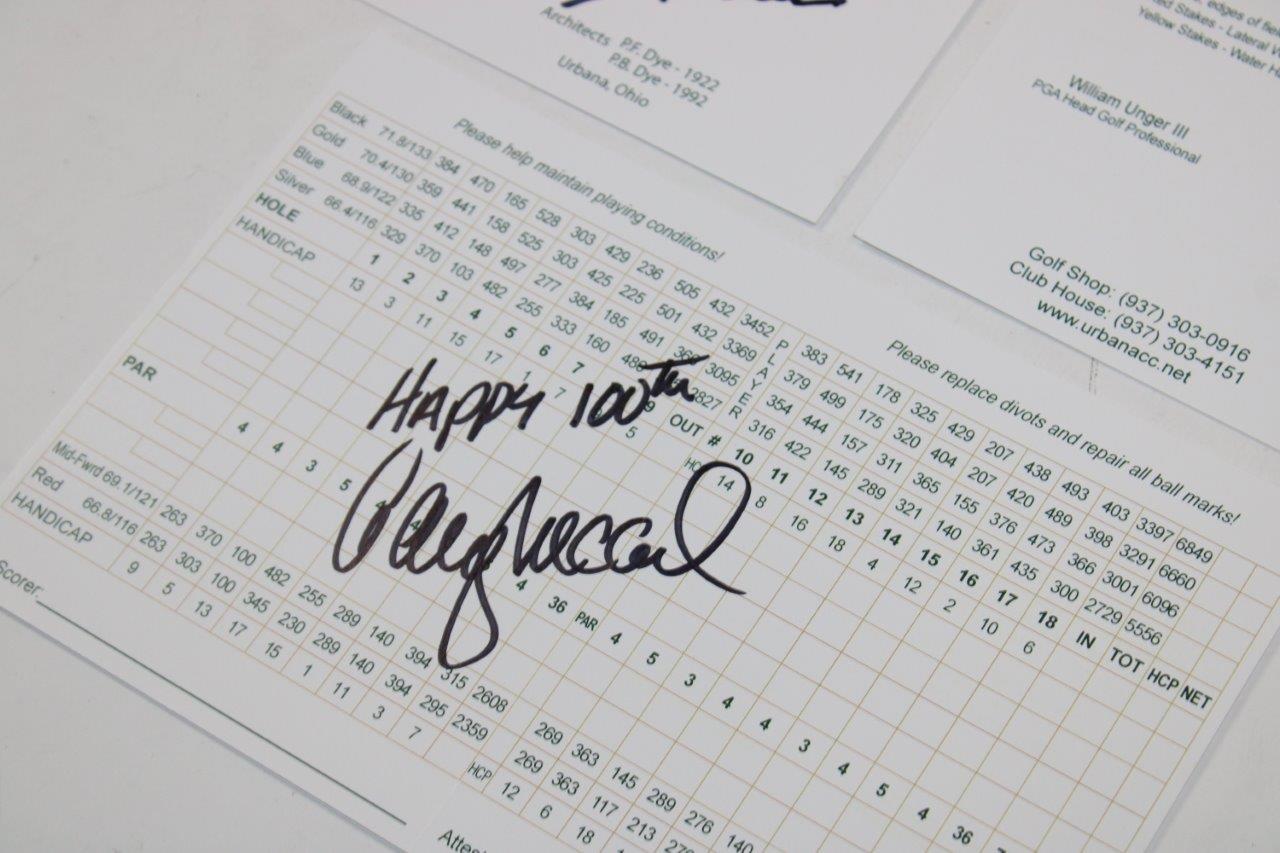 Architects P.F. Dye - 1922
P.B. Dye - 1992
Urbana, Ohio
edges of
Stakes - Lateral
Yellow Stakes - Water
William Unger III
PGA Head Golf Professional
Golf Shop: (937) 303-0916
Club House: (937) 303-4151
www.urbanacc.net
Please help maintain playing conditions!
Please replace divots and repair all ball marks!
Black 71.8/133 384 470 165 528 303 429 236 505 432 3452 PLAYER 383 541 178 325 429 207 438 493 403 3397 6849
Gold 70.4/130 359 441 158 525 303 425 225 501 432 3369 379 499 175 320 404 207 420 489 398 3291 6660
Blue 68.9/122 335 412 148 497 277 384 185 491 3095 354 444 157 311 365 155 376 473 366 3001 6096
Silver 66.4/116 329 370 103 482 255 333 160 2827 316 422 145 289 321 140 361 435 300 2729 5556
HOLE 1 2 3 4 5 6 7 9 OUT # 10 11 12 13 14 15 16 17 18 IN TOT HCP NET
HANDICAP 13 3 11 15 17 1 7 5 14 8 16 18 4 12 2 10 6
Happy 100th
PAR 4 4 3 5 4 4 36 PAR 4 5 3 4 4 3 4 5 4 36
Mid-Fwrd 69.1/121 263 370 100 482 255 289 140 394 315 2608 269 363 145 289 276 140
Red 66.8/116 263 303 100 345 230 289 140 394 295 2359 269 363 117 213 276
HANDICAP 9 5 13 17 15 1 11 3 7 HCP 12 6 18
Scorer